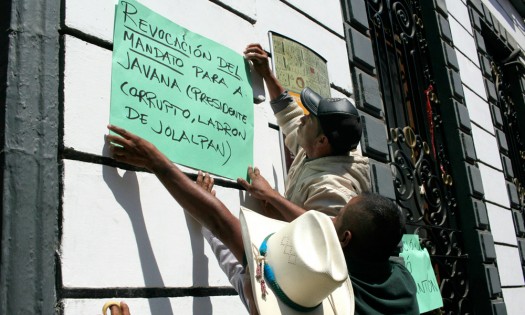 REVOCACIÓN DEL
MANDATO PARA A
JAVANA (PRESIDENTE
CORRUPTO, LADRON
DE JOLALPAN)